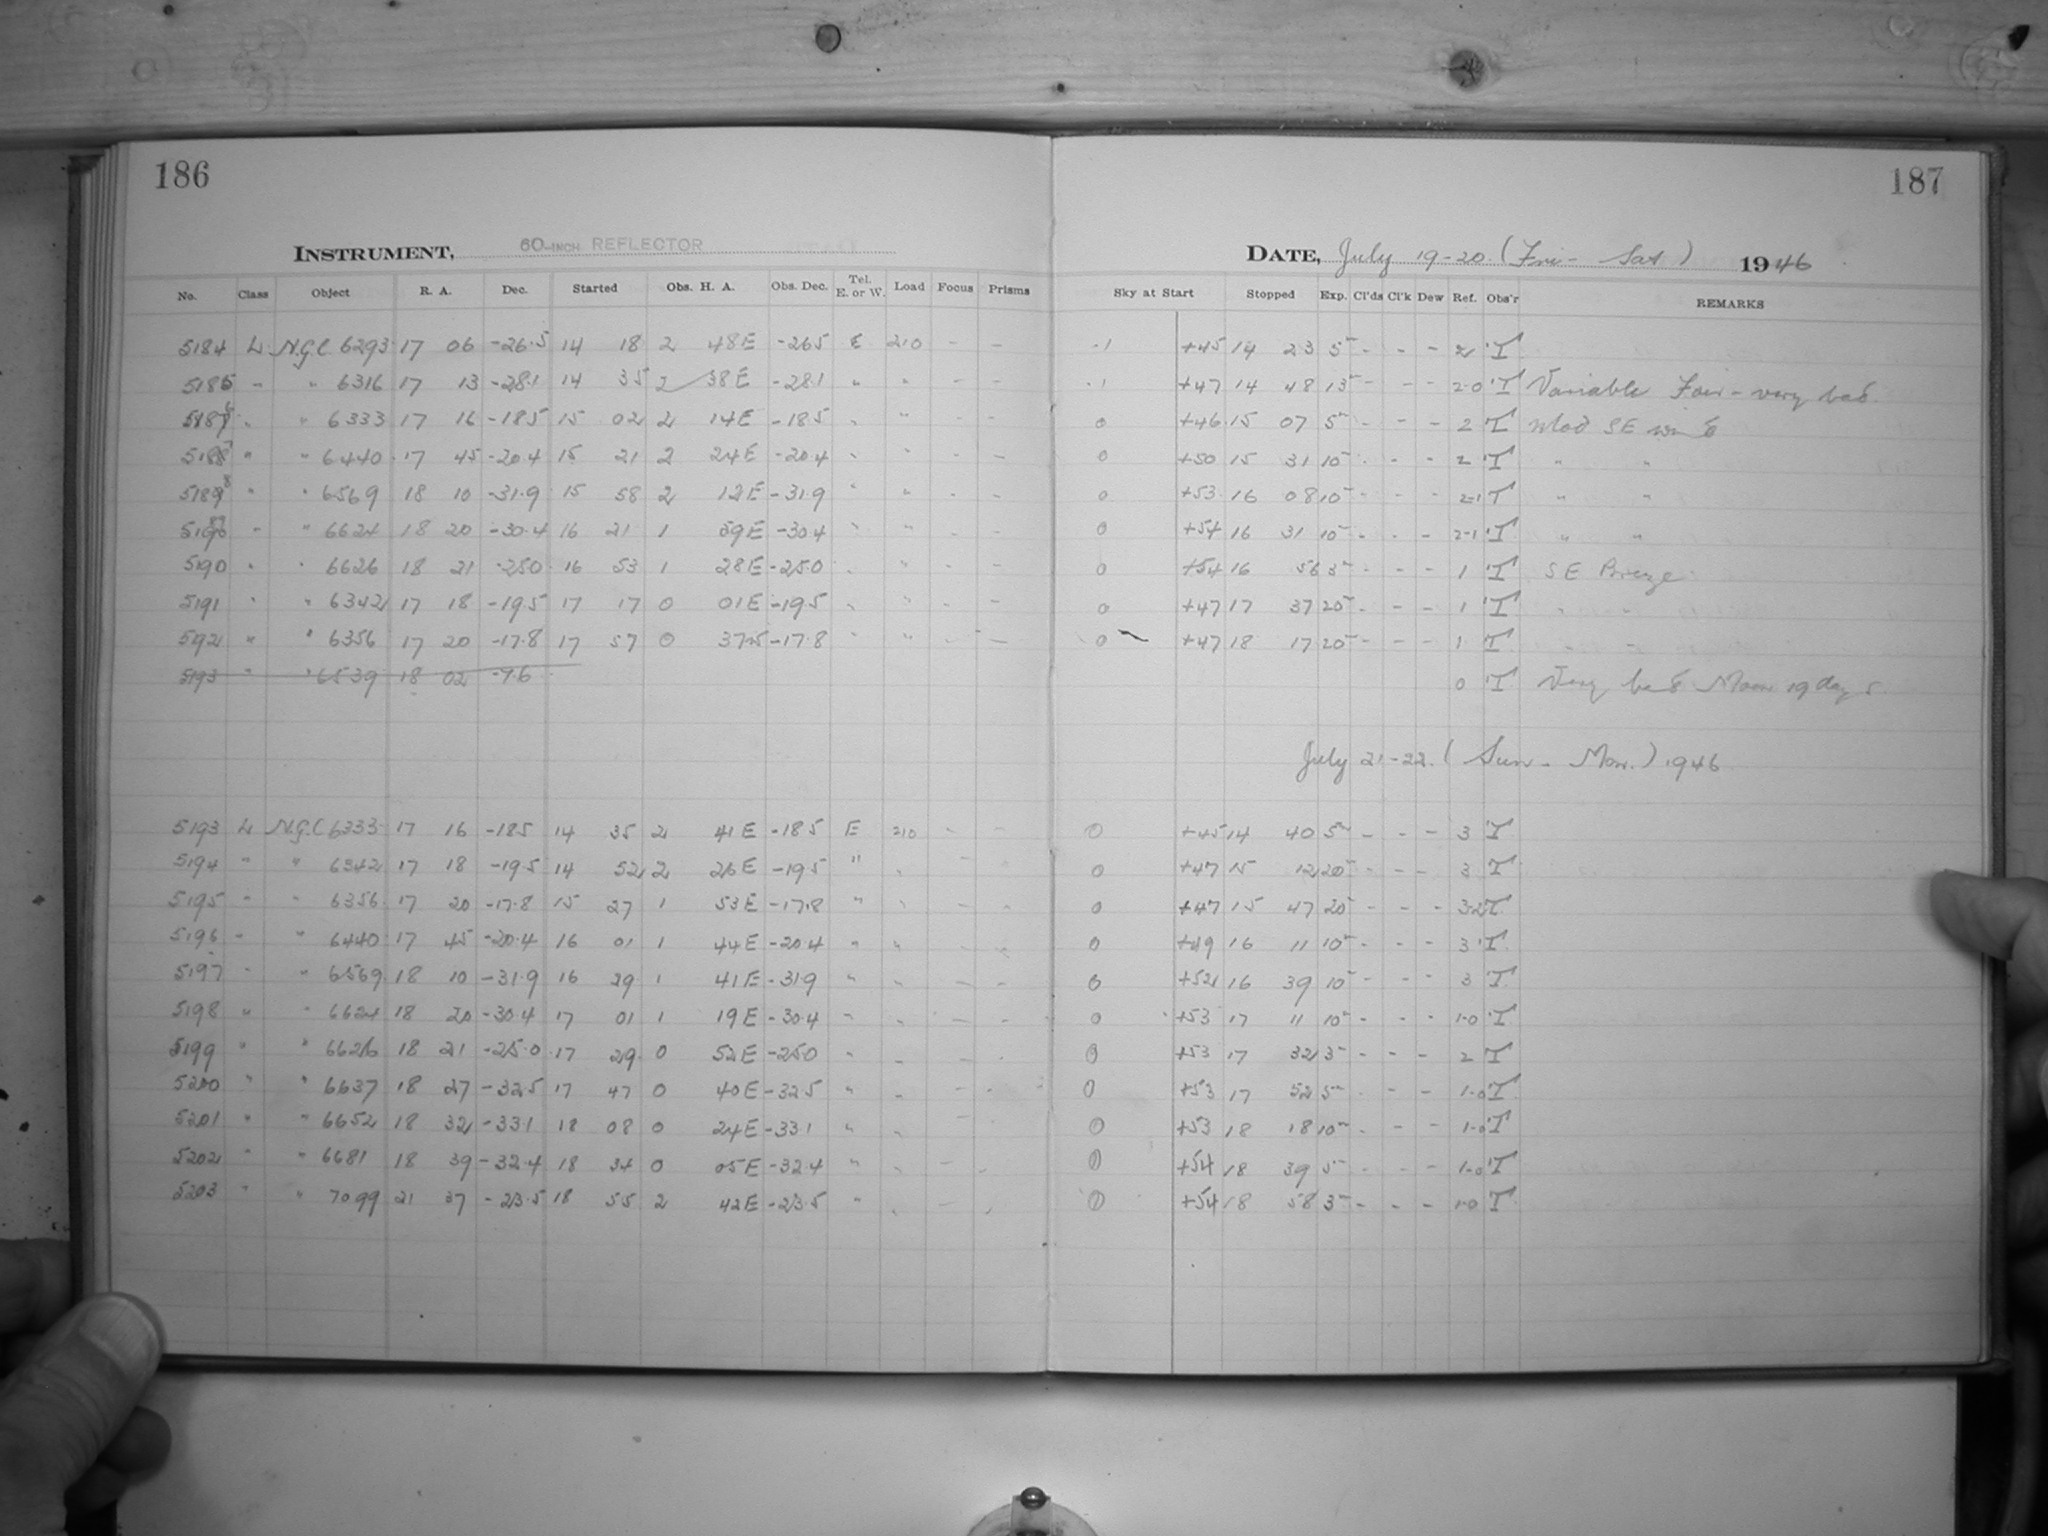 186
INSTRUMENT, 60-INCH REFLECTOR
No. Class Object R. A. Dec. Started Obs. H. A. Obs. Dec. Tel. E. or W. Load Focus Prisms
5184 L N.G.C 6293 17 06 -26.5 14 18 2 48E -26.5 E 210 - -
5185 " " 6316 17 13 -28.1 14 35 2 38E -28.1 " " - -
5186 " " 6333 17 16 -18.5 15 02 2 14E -18.5 " " - -
5187 " " 6440 17 45 -20.4 15 21 2 24E -20.4 " " - -
5188 " " 6569 18 10 -31.9 15 58 2 12E -31.9 " " - -
5189 " " 6624 18 20 -30.4 16 21 1 59E -30.4 " " - -
5190 " " 6626 18 21 -25.0 16 53 1 28E -25.0 " " - -
5191 " " 6342 17 18 -19.5 17 17 0 01E -19.5 " " - -
5192 " " 6356 17 20 -17.8 17 57 0 37 -17.8 " " - -
5193 " " 6539 18 02 -7.6
5193 L N.G.C 6333 17 16 -18.5 14 35 2 41E -18.5 E 210 - -
5194 " " 6342 17 18 -19.5 14 52 2 26E -19.5 " " - -
5195 " " 6356 17 20 -17.8 15 27 1 53E -17.8 " " - -
5196 " " 6440 17 45 -20.4 16 01 1 44E -20.4 " " - -
5197 " " 6569 18 10 -31.9 16 29 1 41E -31.9 " " - -
5198 " " 6624 18 20 -30.4 17 01 1 19E -30.4 " " - -
5199 " " 6626 18 21 -25.0 17 29 0 52E -25.0 " " - -
5200 " " 6637 18 27 -32.5 17 47 0 40E -32.5 " " - -
5201 " " 6652 18 32 -33.1 18 08 0 24E -33.1 " " - -
5202 " " 6681 18 39 -32.4 18 34 0 05E -32.4 " " - -
5203 " " 7099 21 37 -23.5 18 55 2 42E -23.5 " " - -
187
DATE, July 19-20 (Fri - Sat) 1946
Sky at Start Stopped Exp. Cl'ds Cl'k Dew Ref. Obs'r REMARKS
-1 +45 14 23 5m - - - 2 T
-1 +47 14 48 13m - - - 2-0 T Variable Fair - very bad
0 +46 15 07 5m - - - 2 T Mod SE wind
0 +50 15 31 10m - - - 2 T " "
0 +53 16 08 10m - - - 2-1 T " "
0 +54 16 31 10m - - - 2-1 T " "
0 +54 16 56 3m - - - 1 T SE Breeze
0 +47 17 37 20m - - - 1 T " "
0 +47 18 17 20m - - - 1 T " "
0 T Very bad Moon 19 days
July 21-22. (Sun - Mon.) 1946
0 +45 14 40 5m - - - 3 T
0 +47 15 12 20m - - - 3 T
0 +47 15 47 20m - - - 3-2 T
0 +49 16 11 10m - - - 3 T
0 +52 16 39 10m - - - 3 T
0 +53 17 11 10m - - - 1-0 T
0 +53 17 32 3m - - - 2 T
0 +53 17 52 5m - - - 1-0 T
0 +53 18 18 10m - - - 1-0 T
0 +54 18 39 5m - - - 1-0 T
0 +54 18 58 3m - - - 1-0 T